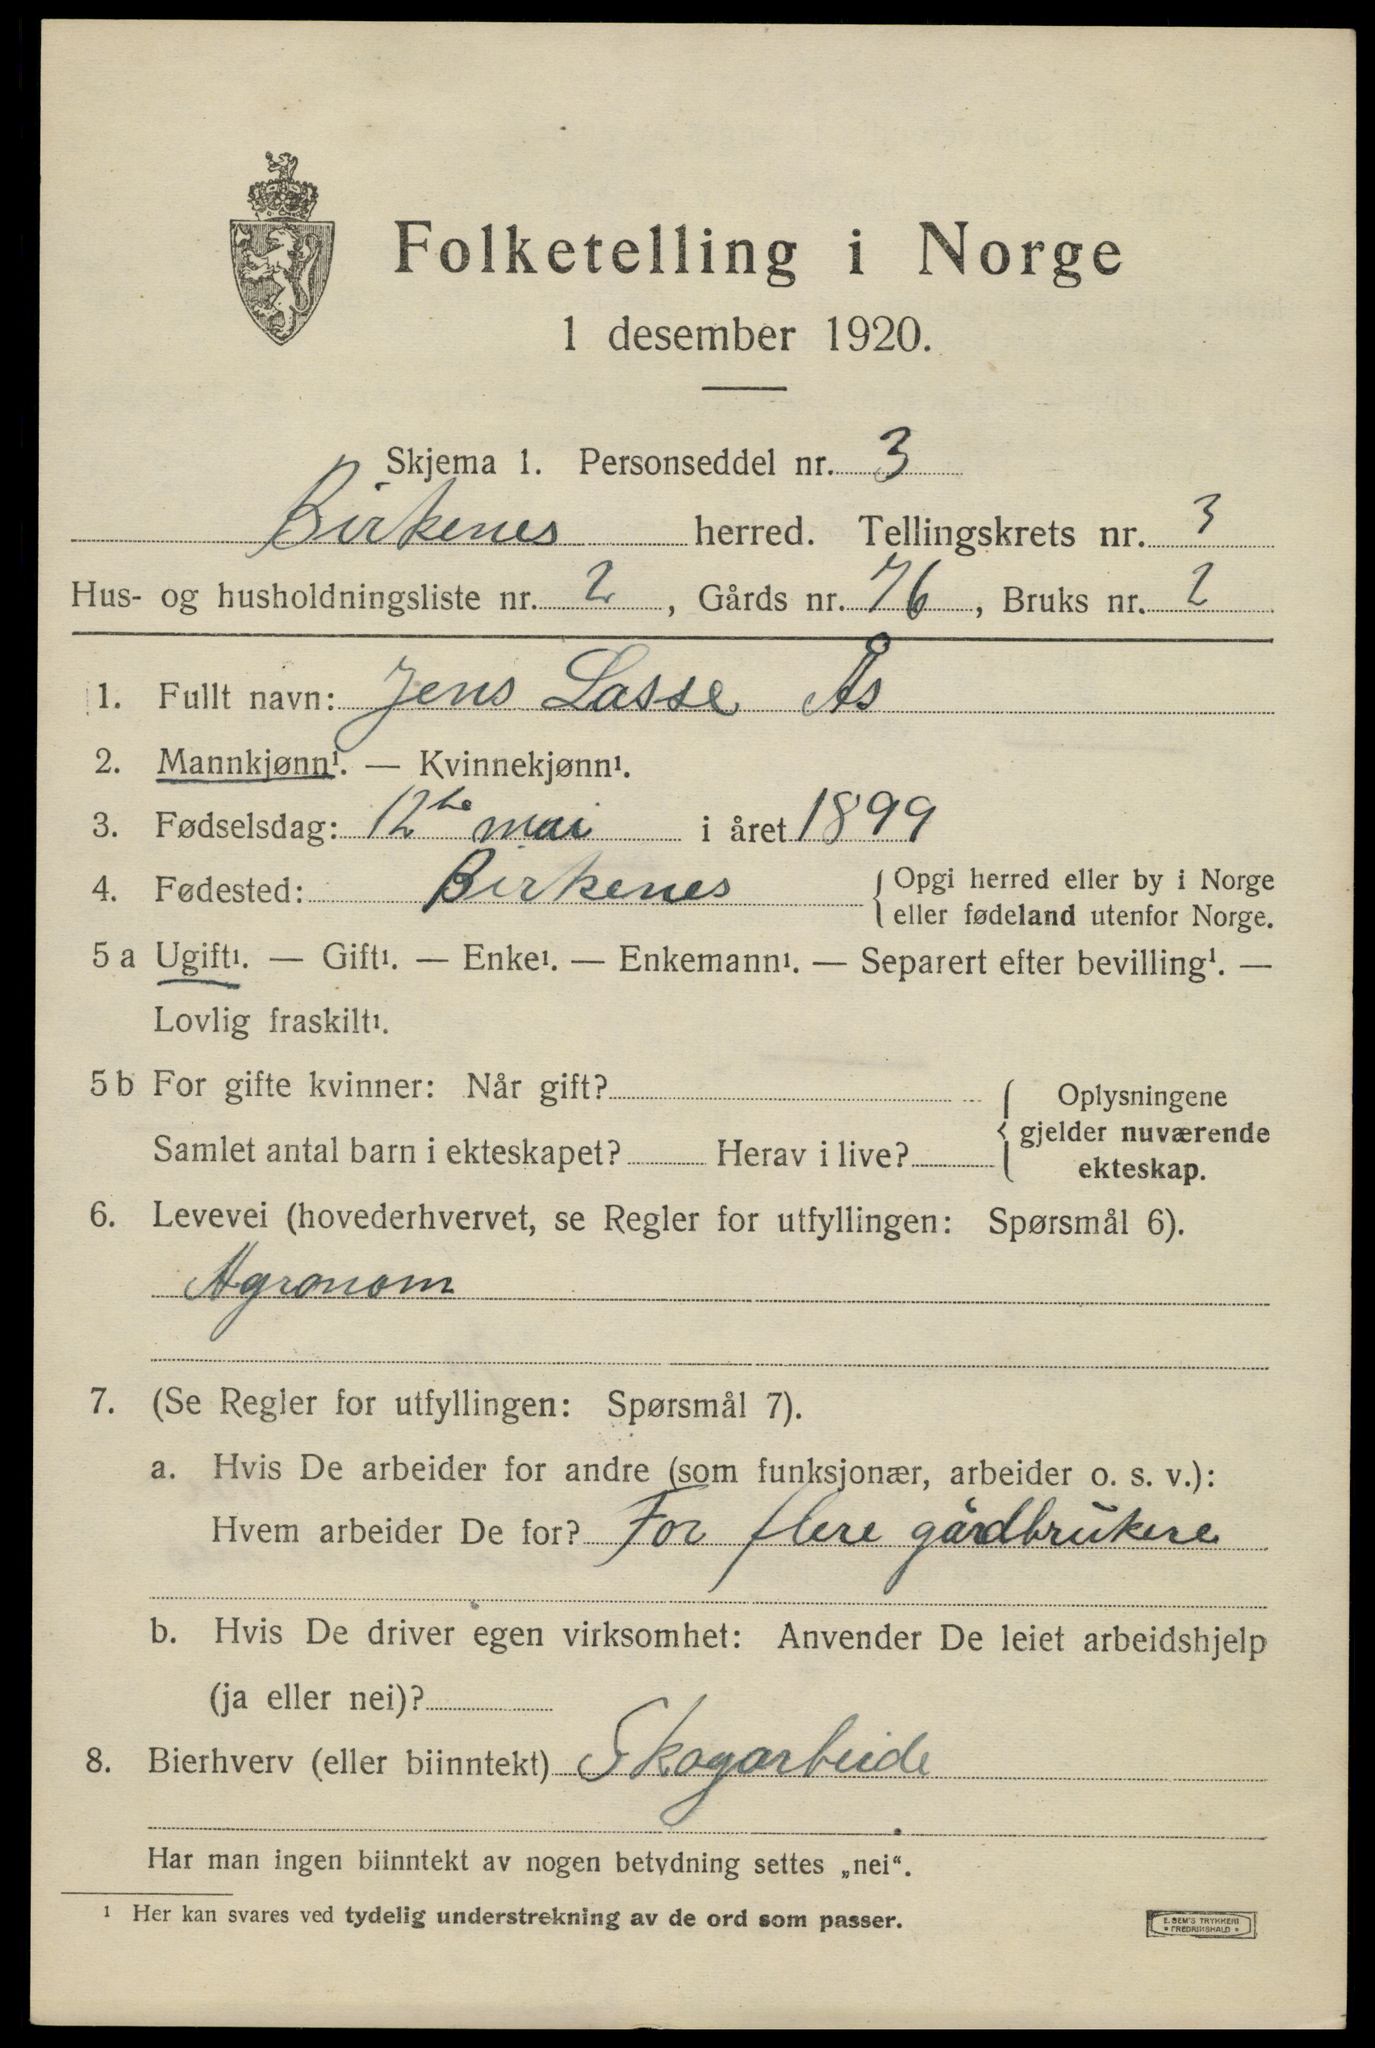 Folketelling i Norge
1 desember 1920.
Skjema 1. Personseddel nr. 3
Birkenes herred. Tellingskrets nr. 3
Hus- og husholdningsliste nr. 2, Gårds nr. 76, Bruks nr. 2
1. Fullt navn: Jens Lasse Ås
2. Mannkjønn¹. — Kvinnekjønn¹.
3. Fødselsdag: 12te mai i året 1899
4. Fødested: Birkenes { Opgi herred eller by i Norge
eller fødeland utenfor Norge.
5 a Ugift¹. — Gift¹. — Enke¹. — Enkemann¹. — Separert efter bevilling¹. —
Lovlig fraskilt¹.
5 b For gifte kvinner: Når gift? { Oplysningene
gjelder nuværende
Samlet antal barn i ekteskapet? Herav i live?
ekteskap.
6. Levevei (hovederhvervet, se Regler for utfyllingen: Spørsmål 6).
Agronom
7. (Se Regler for utfyllingen: Spørsmål 7).
a. Hvis De arbeider for andre (som funksjonær, arbeider o. s. v.):
Hvem arbeider De for? For flere gårdbrukere
b. Hvis De driver egen virksomhet: Anvender De leiet arbeidshjelp
(ja eller nei)?
8. Bierhverv (eller biinntekt) Skogarbeide
Har man ingen biinntekt av nogen betydning settes „nei“.
¹ Her kan svares ved tydelig understrekning av de ord som passer.
E. SEM'S TRYKKERI
• FREDRIKSHALD •